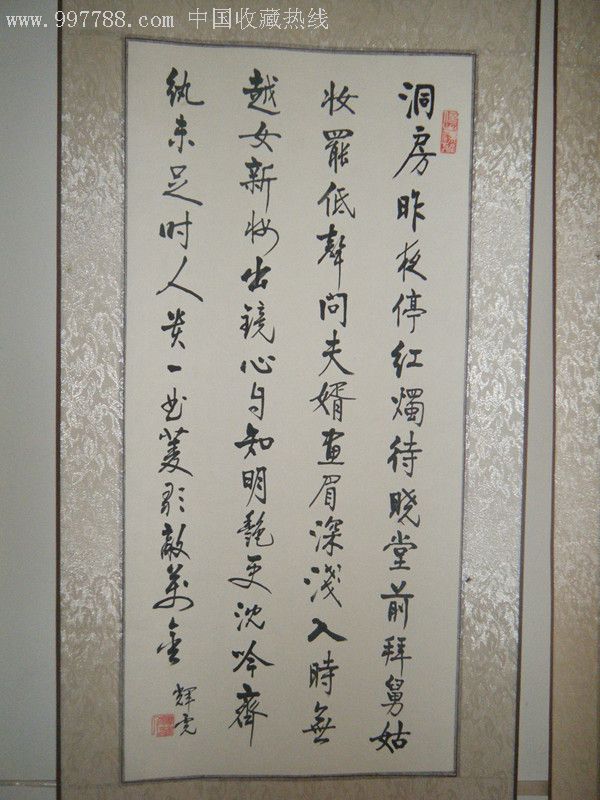 www.997788.com 中国收藏热线
洞房昨夜停红燭待晓堂前拜舅姑
妆罷低聲问夫婿畫眉深淺入時無
越女新妆出镜心自知明艷更沈吟齊
纨未足时人贵一曲菱歌敵萬金
輝